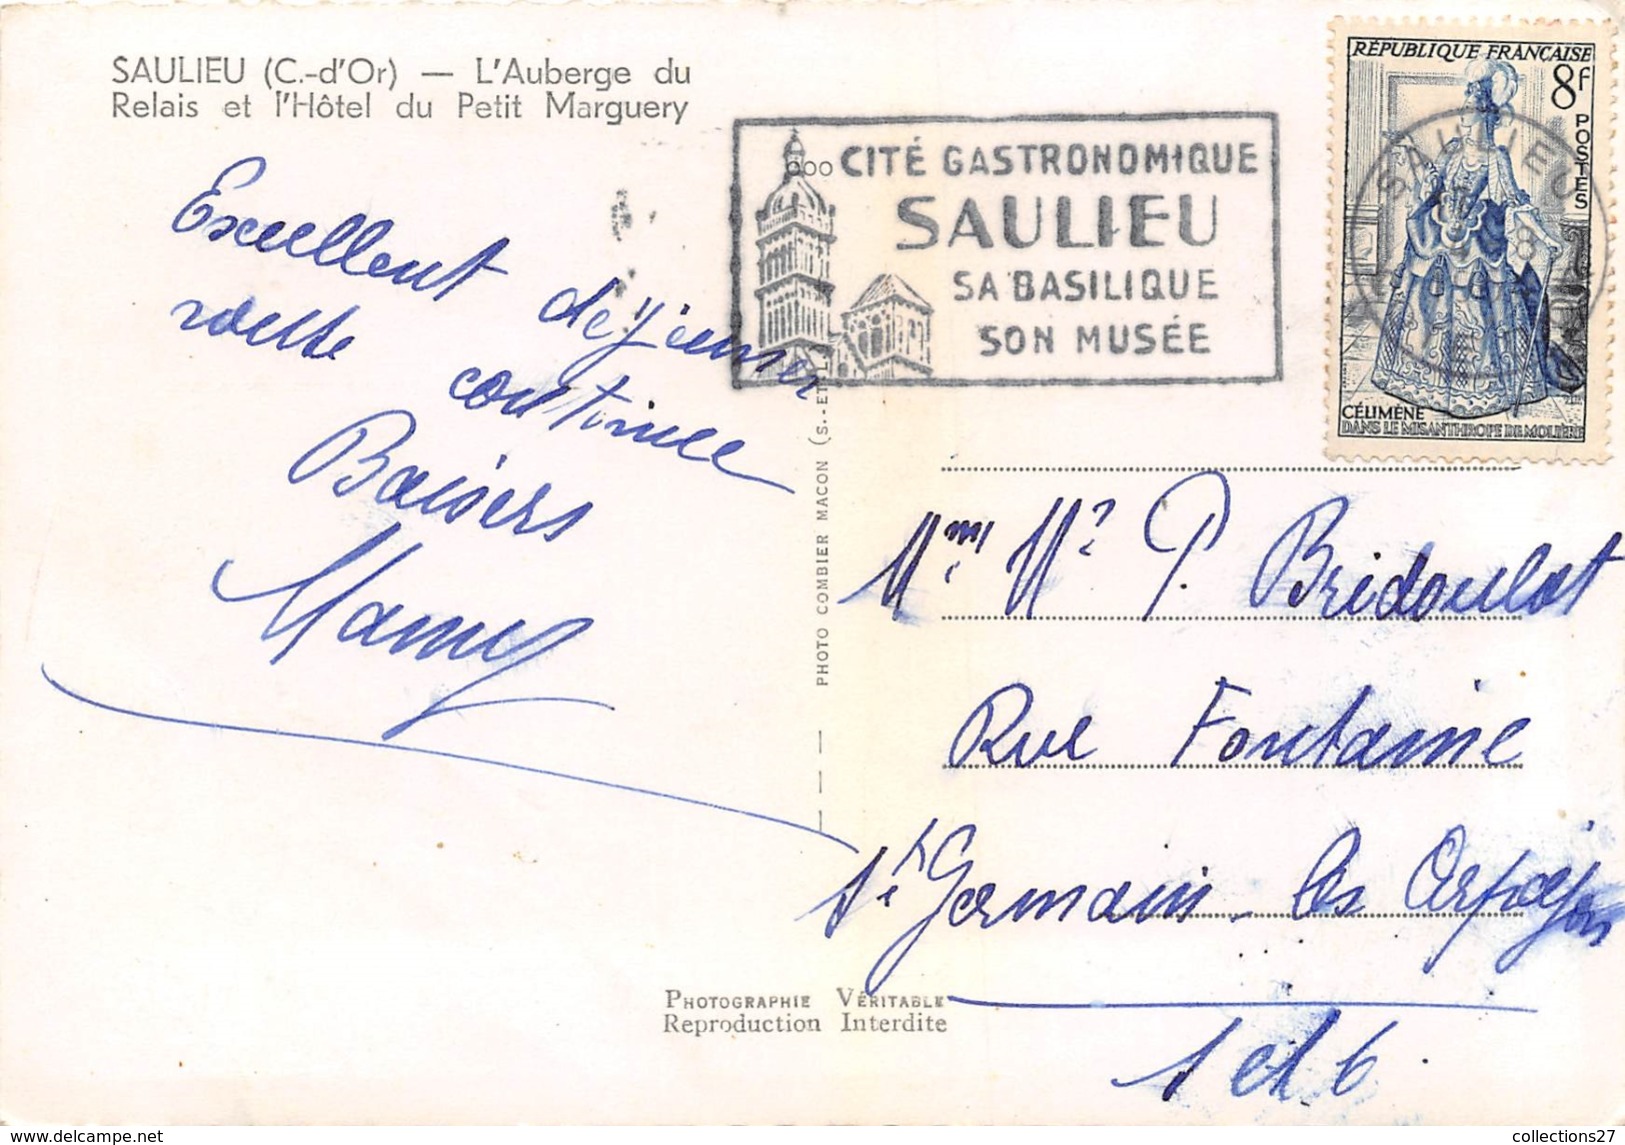 SAULIEU (C.-d'Or) — L'Auberge du
Relais et l'Hôtel du Petit Marguery
Excellent déjeuner
route continue
Baisers
Mamy
ooo CITÉ GASTRONOMIQUE
SAULIEU
SA BASILIQUE
SON MUSÉE
RÉPUBLIQUE FRANÇAISE
8f
POSTES
SAULIEU
CÉLIMÈNE
DANS LE MISANTHROPE DE MOLIÈRE
PHOTO COMBIER MACON (S.-ET-L.)
Mme Mr P. Bridoulot
Rue Fontaine
St Germain-les Arpajon
S et O
PHOTOGRAPHIE VÉRITABLE
Reproduction Interdite
collections27